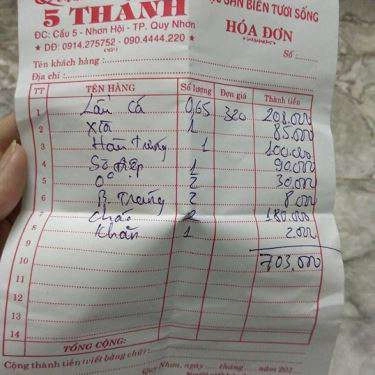 5 THÀNH
ĐC: Cầu 5 - Nhơn Hội - TP. Quy Nhơn
★ DĐ: 0914.275752 - 090.4444.220 ★
SẢN BIỂN TƯƠI SỐNG
HÓA ĐƠN
Số:
Tên khách hàng:
Địa chỉ:
TT TÊN HÀNG Số lượng Đơn giá Thành tiền
1 Lẩu cá 0,65 320 208.000
2 1 85.000
3 1 100.000
4 2 90.000
5 Ốc 2 30.000
6 2 8.000
7 cháo 2 180.000
8 Khăn 1 2.000
9 703,000
10
11
12
13
14
TỔNG CỘNG:
Cộng thành tiền (viết bằng chữ):
Quy Nhơn, ngày tháng năm 202